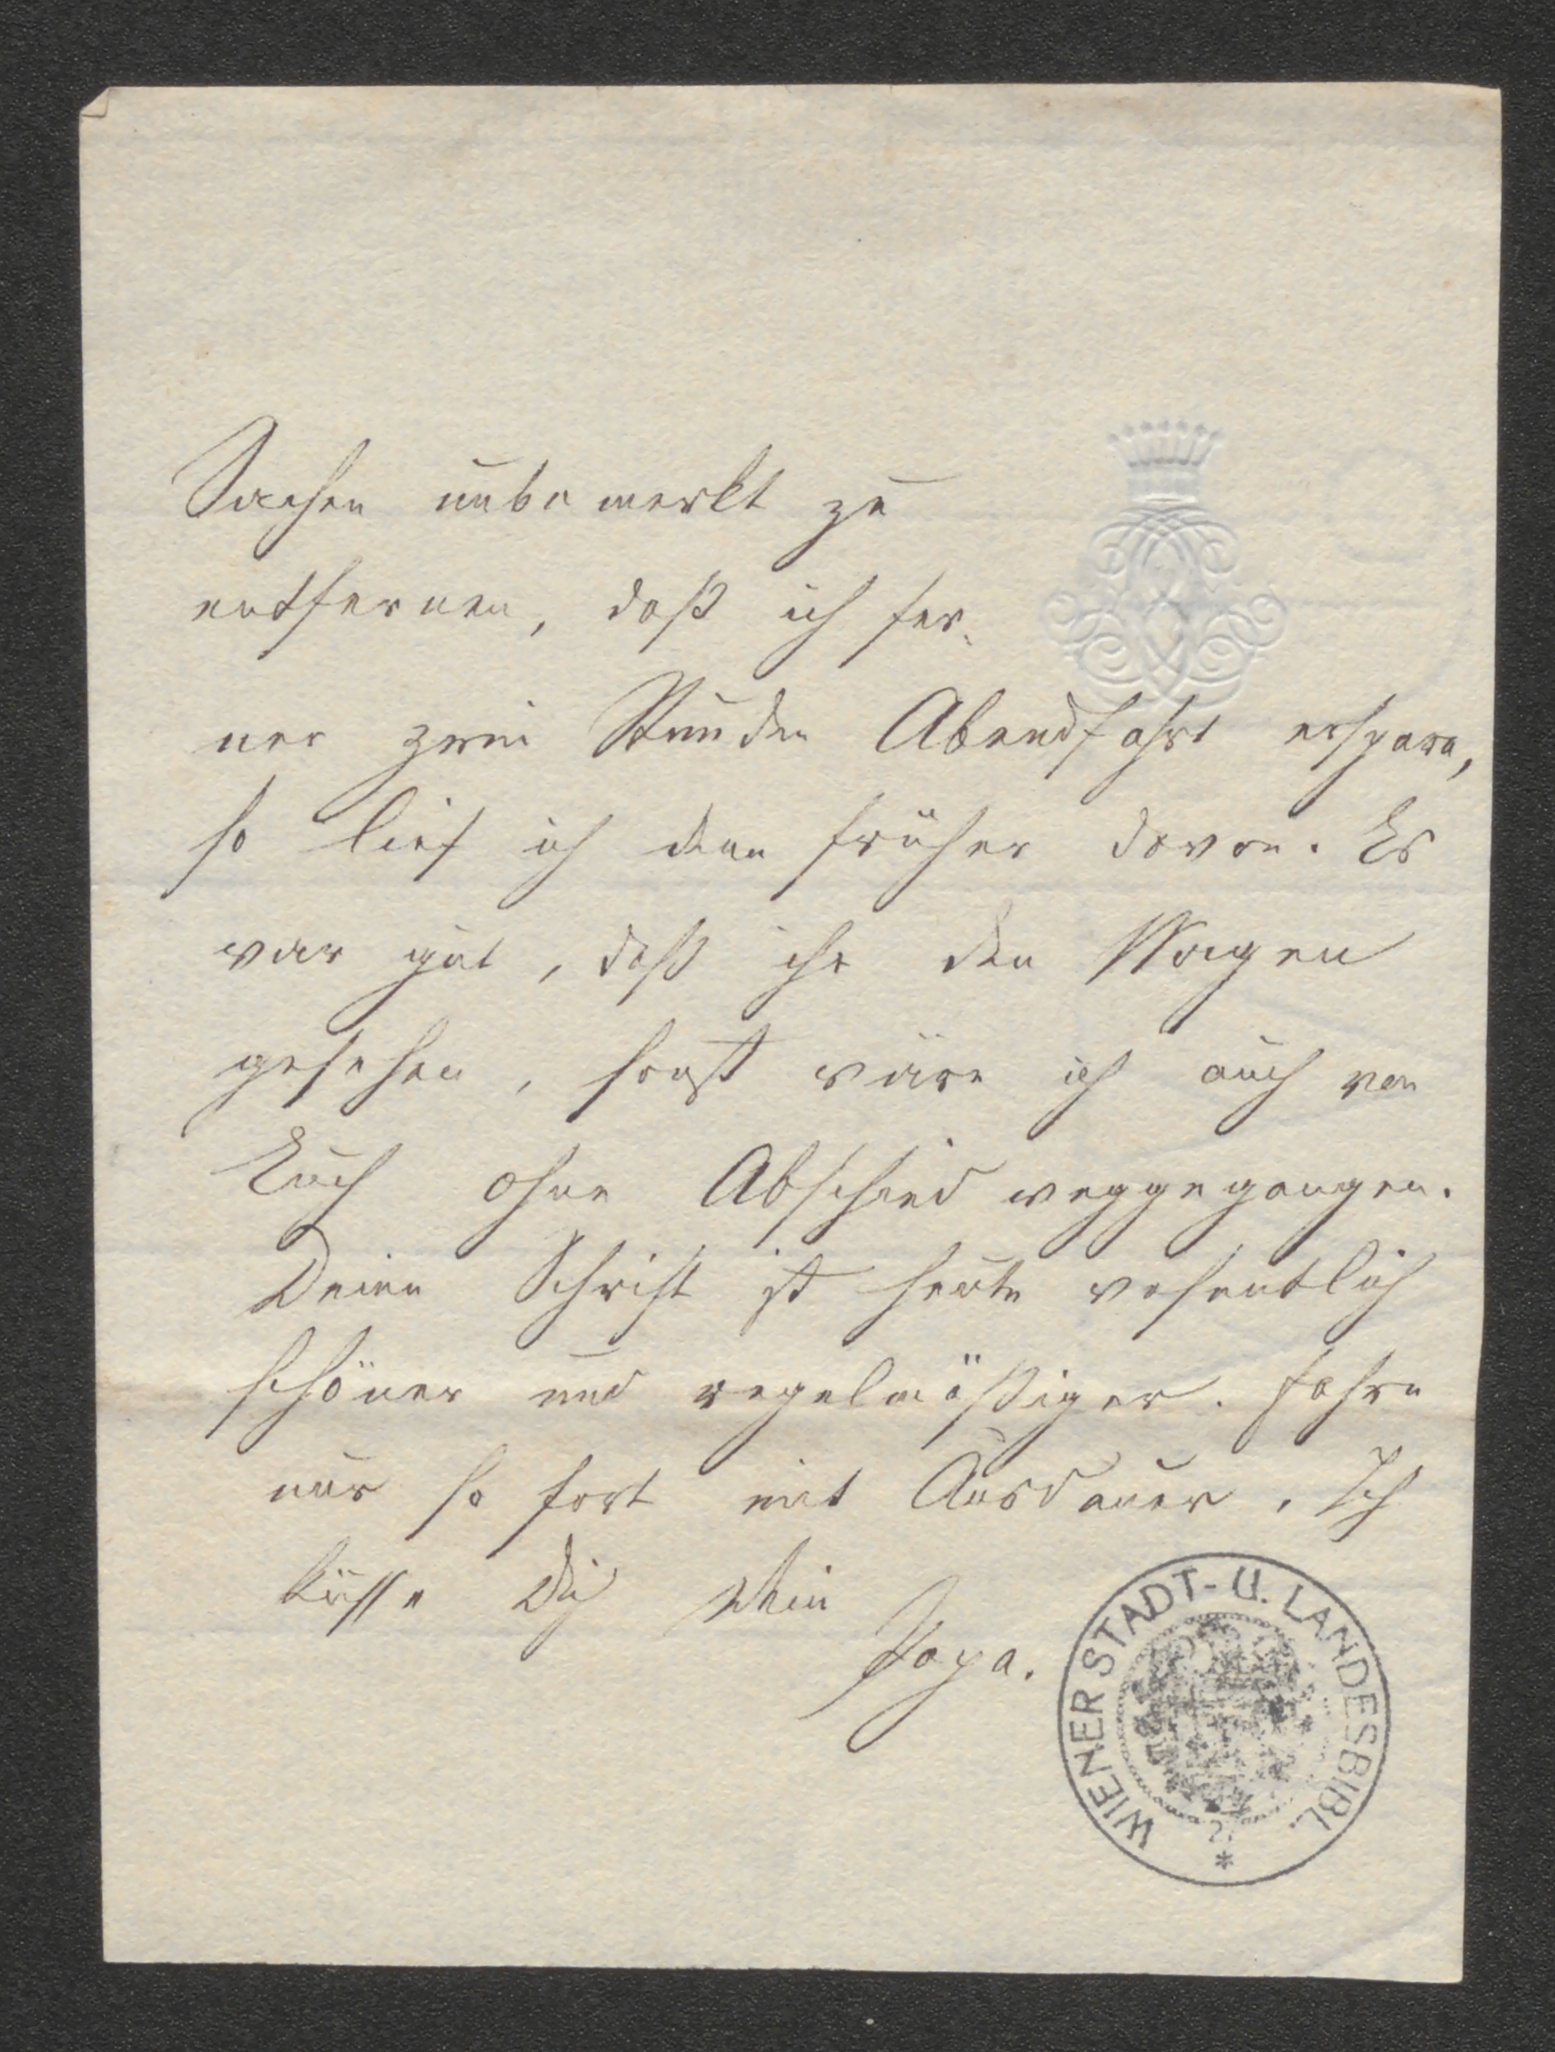 Sachen unbemerkt zu
entfernen, daß ich fer-
ner zwei Stunden Abendfahrt erspare,
so lief ich denn früher davon. Es
war gut, daß ihr den Wagen
gesehen, sonst wäre ich auch von
Euch ohne Abschied weggegangen.
Deine Schrift ist heute wesentlich
schöner und regelmäßiger. Fahre
nur so fort mit Ausdauer. Ich
küsse Dich Dein
Papa.
WIENER STADT- U. LANDESBIBL.